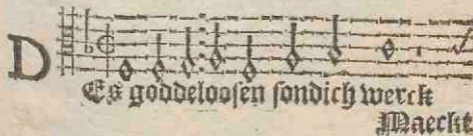 DEs goddeloosen sondich werck
Maeckt